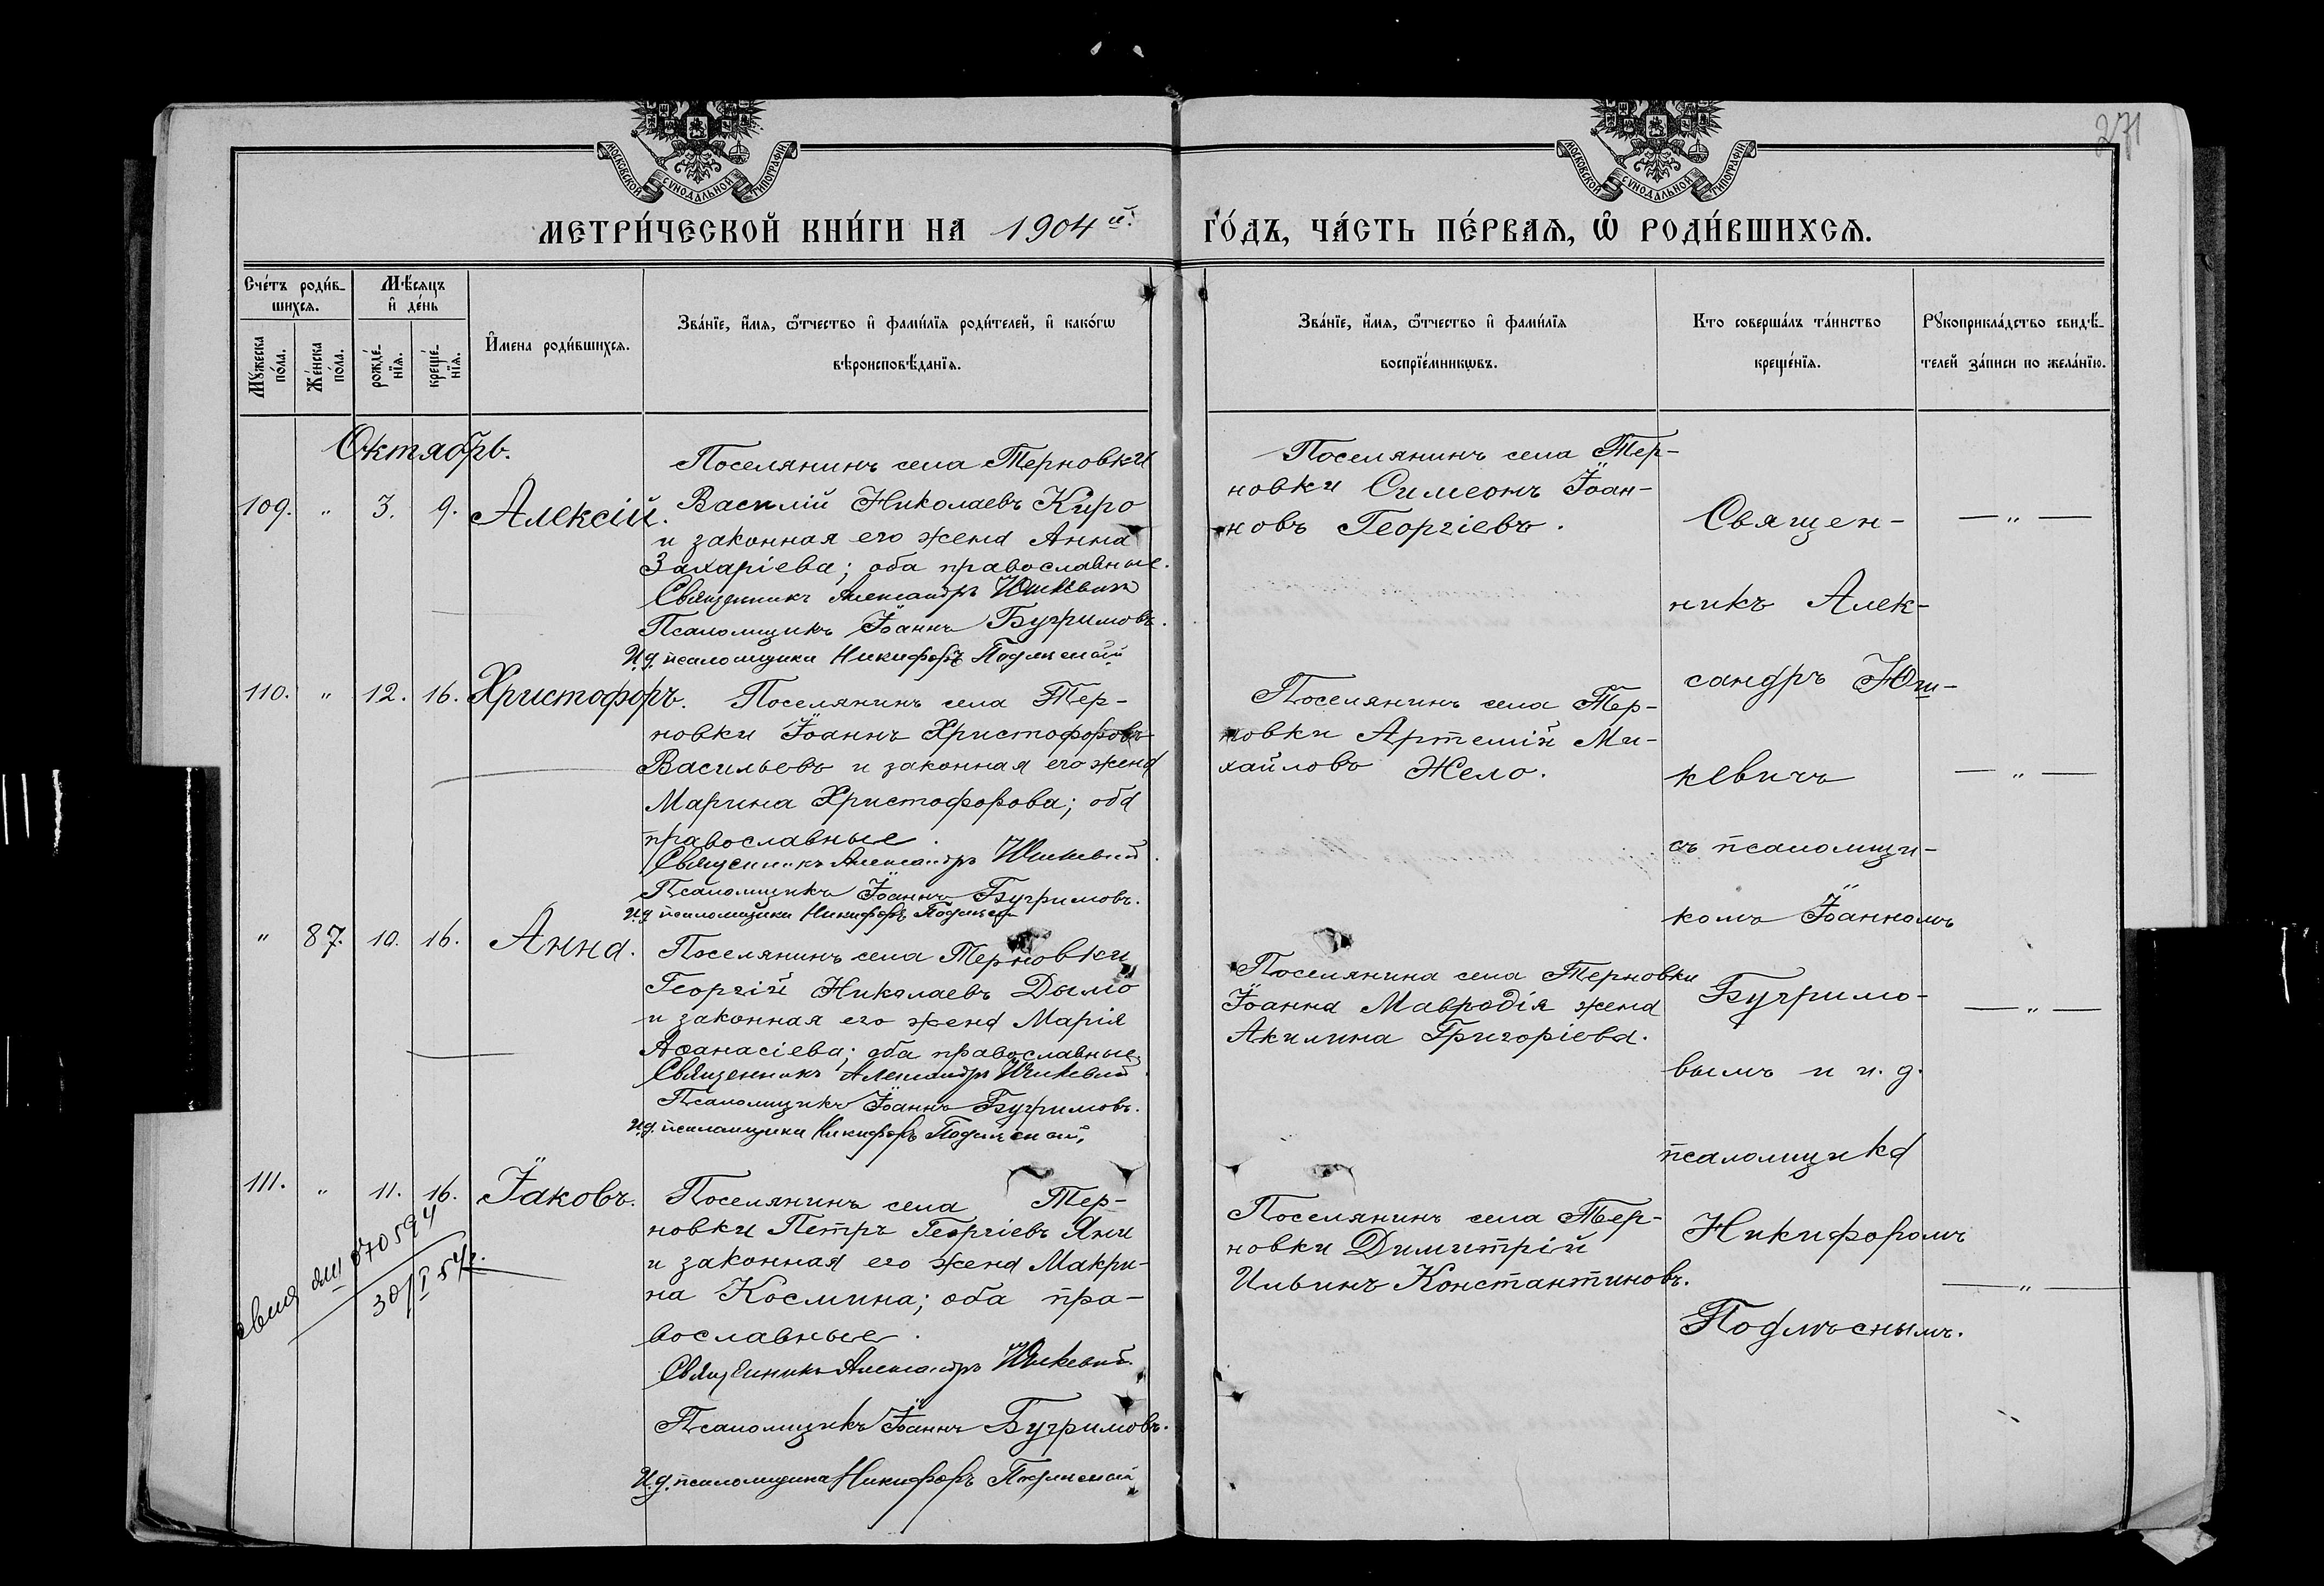 271
МОСКОВСКОЙ СѴНОДАЛЬНОЙ ТИПОГРАФІИ
МОСКОВСКОЙ СѴНОДАЛЬНОЙ ТИПОГРАФІИ
МЕТРИ́ЧЕСКОЙ КНИ́ГИ НА 1904й. ГО́ДЪ, ЧА́СТЬ ПЕ́РВАѦ, Ѽ РОДИ́ВШИХСѦ.
Сче́тъ роди́в-
шихсѧ.
Мꙋ́жеска
по́ла.
Же́нска
по́ла.
Мѣ́сѧцъ
и҆ де́нь
рожде́-
нїѧ.
креще́-
нїѧ.
И҆мена роди́вшихсѧ.
Зва́нїе, и҆́мѧ, ѻ҆́тчество и҆ фамѝлїѧ роди́телей, и҆ како́гѡ
вѣроисповѣ́данїѧ.
Зва́нїе, и҆́мѧ, ѻ҆́тчество и҆ фамѝлїѧ
воспрїе́мникѡвъ.
Кто соверша́лъ та́инство
креще́нїѧ.
Рꙋкоприкла́дство свидѣ́-
телей за́писи по жела́нїю.
Октябрь.
109. " 3. 9. Алексій.
Поселянинъ села Терновки
Василій Николаевъ Киро
и законная его жена Анна
Захаріева; оба православные.
Священникъ Александръ Юшкевичъ
Псаломщикъ Іоаннъ Бугримовъ.
И.д. псаломщика Никифоръ Подлѣсный
Поселянинъ села Тер-
новки Симеонъ Іоан-
новъ Георгіевъ.
— " —
110. " 12. 16. Христофоръ.
Поселянинъ села Тер-
новки Іоаннъ Христофоровъ
Васильевъ и законная его жена
Марина Христофорова; оба
православные.
Священникъ Александръ Юшкевичъ.
Псаломщикъ Іоаннъ Бугримовъ.
И.д. псаломщика Никифоръ Подлѣсный
Поселянинъ села Тер-
новки Артемій Ми-
хайловъ Жело.
— " —
" 87. 10. 16. Анна.
Поселянинъ села Терновки
Георгій Николаевъ Дымо
и законная его жена Марія
Аѳанасіева; оба православные.
Священникъ Александръ Юшкевичъ.
Псаломщикъ Іоаннъ Бугримовъ.
И.д. псаломщика Никифоръ Подлѣсный
Поселянина села Терновки
Іоанна Мавродія жена
Акилина Григоріева.
— " —
111. " 11. 16. Іаковъ.
Поселянинъ села Тер-
новки Петръ Георгіевъ Яни
и законная его жена Макри-
на Космина; оба пра-
вославные.
Священникъ Александръ Юшкевичъ.
Псаломщикъ Іоаннъ Бугримовъ.
И.д. псаломщика Никифоръ Подлѣсный
Поселянинъ села Тер-
новки Димитрій
Ильинъ Константиновъ.
— " —
Священ-
никъ Алек-
сандръ Юш-
кевичъ
съ псаломщи-
комъ Іоанномъ
Бугримо-
вымъ и и. д.
псаломщика
Никифоромъ
Подлѣснымъ.
070594
30/I 54г.